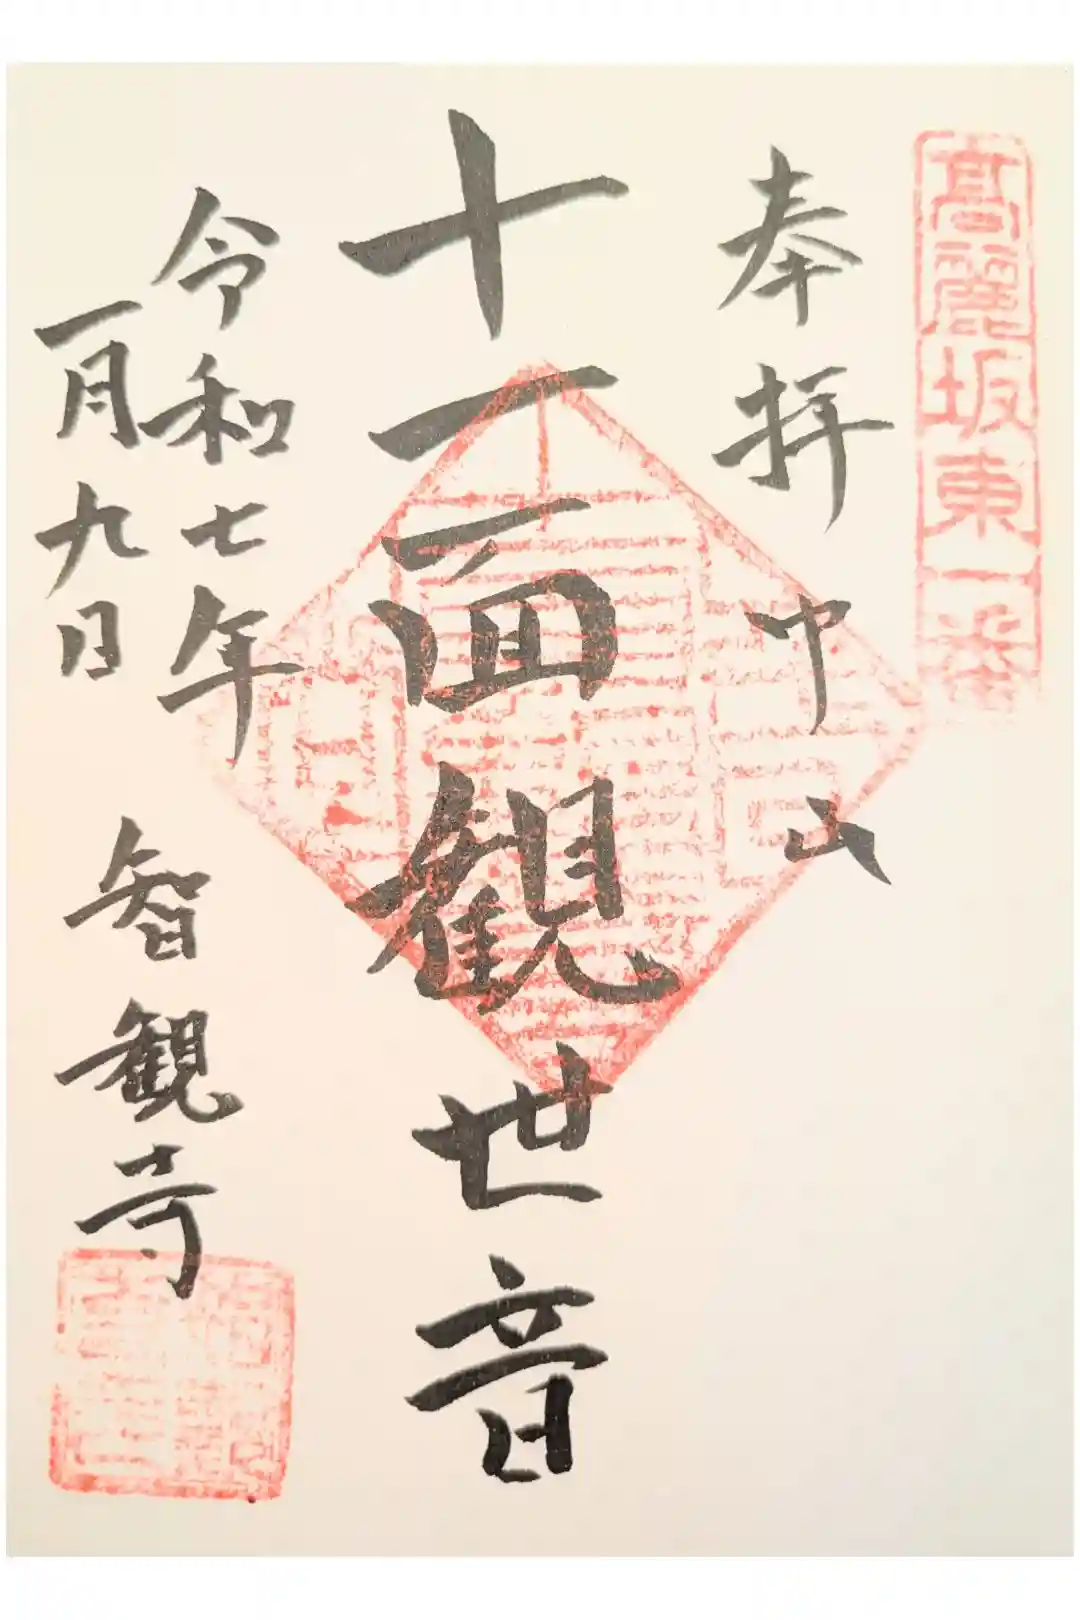 高麗坂東一番
奉拝 中山
十一面観世音
令和七年
一月九日
智観寺